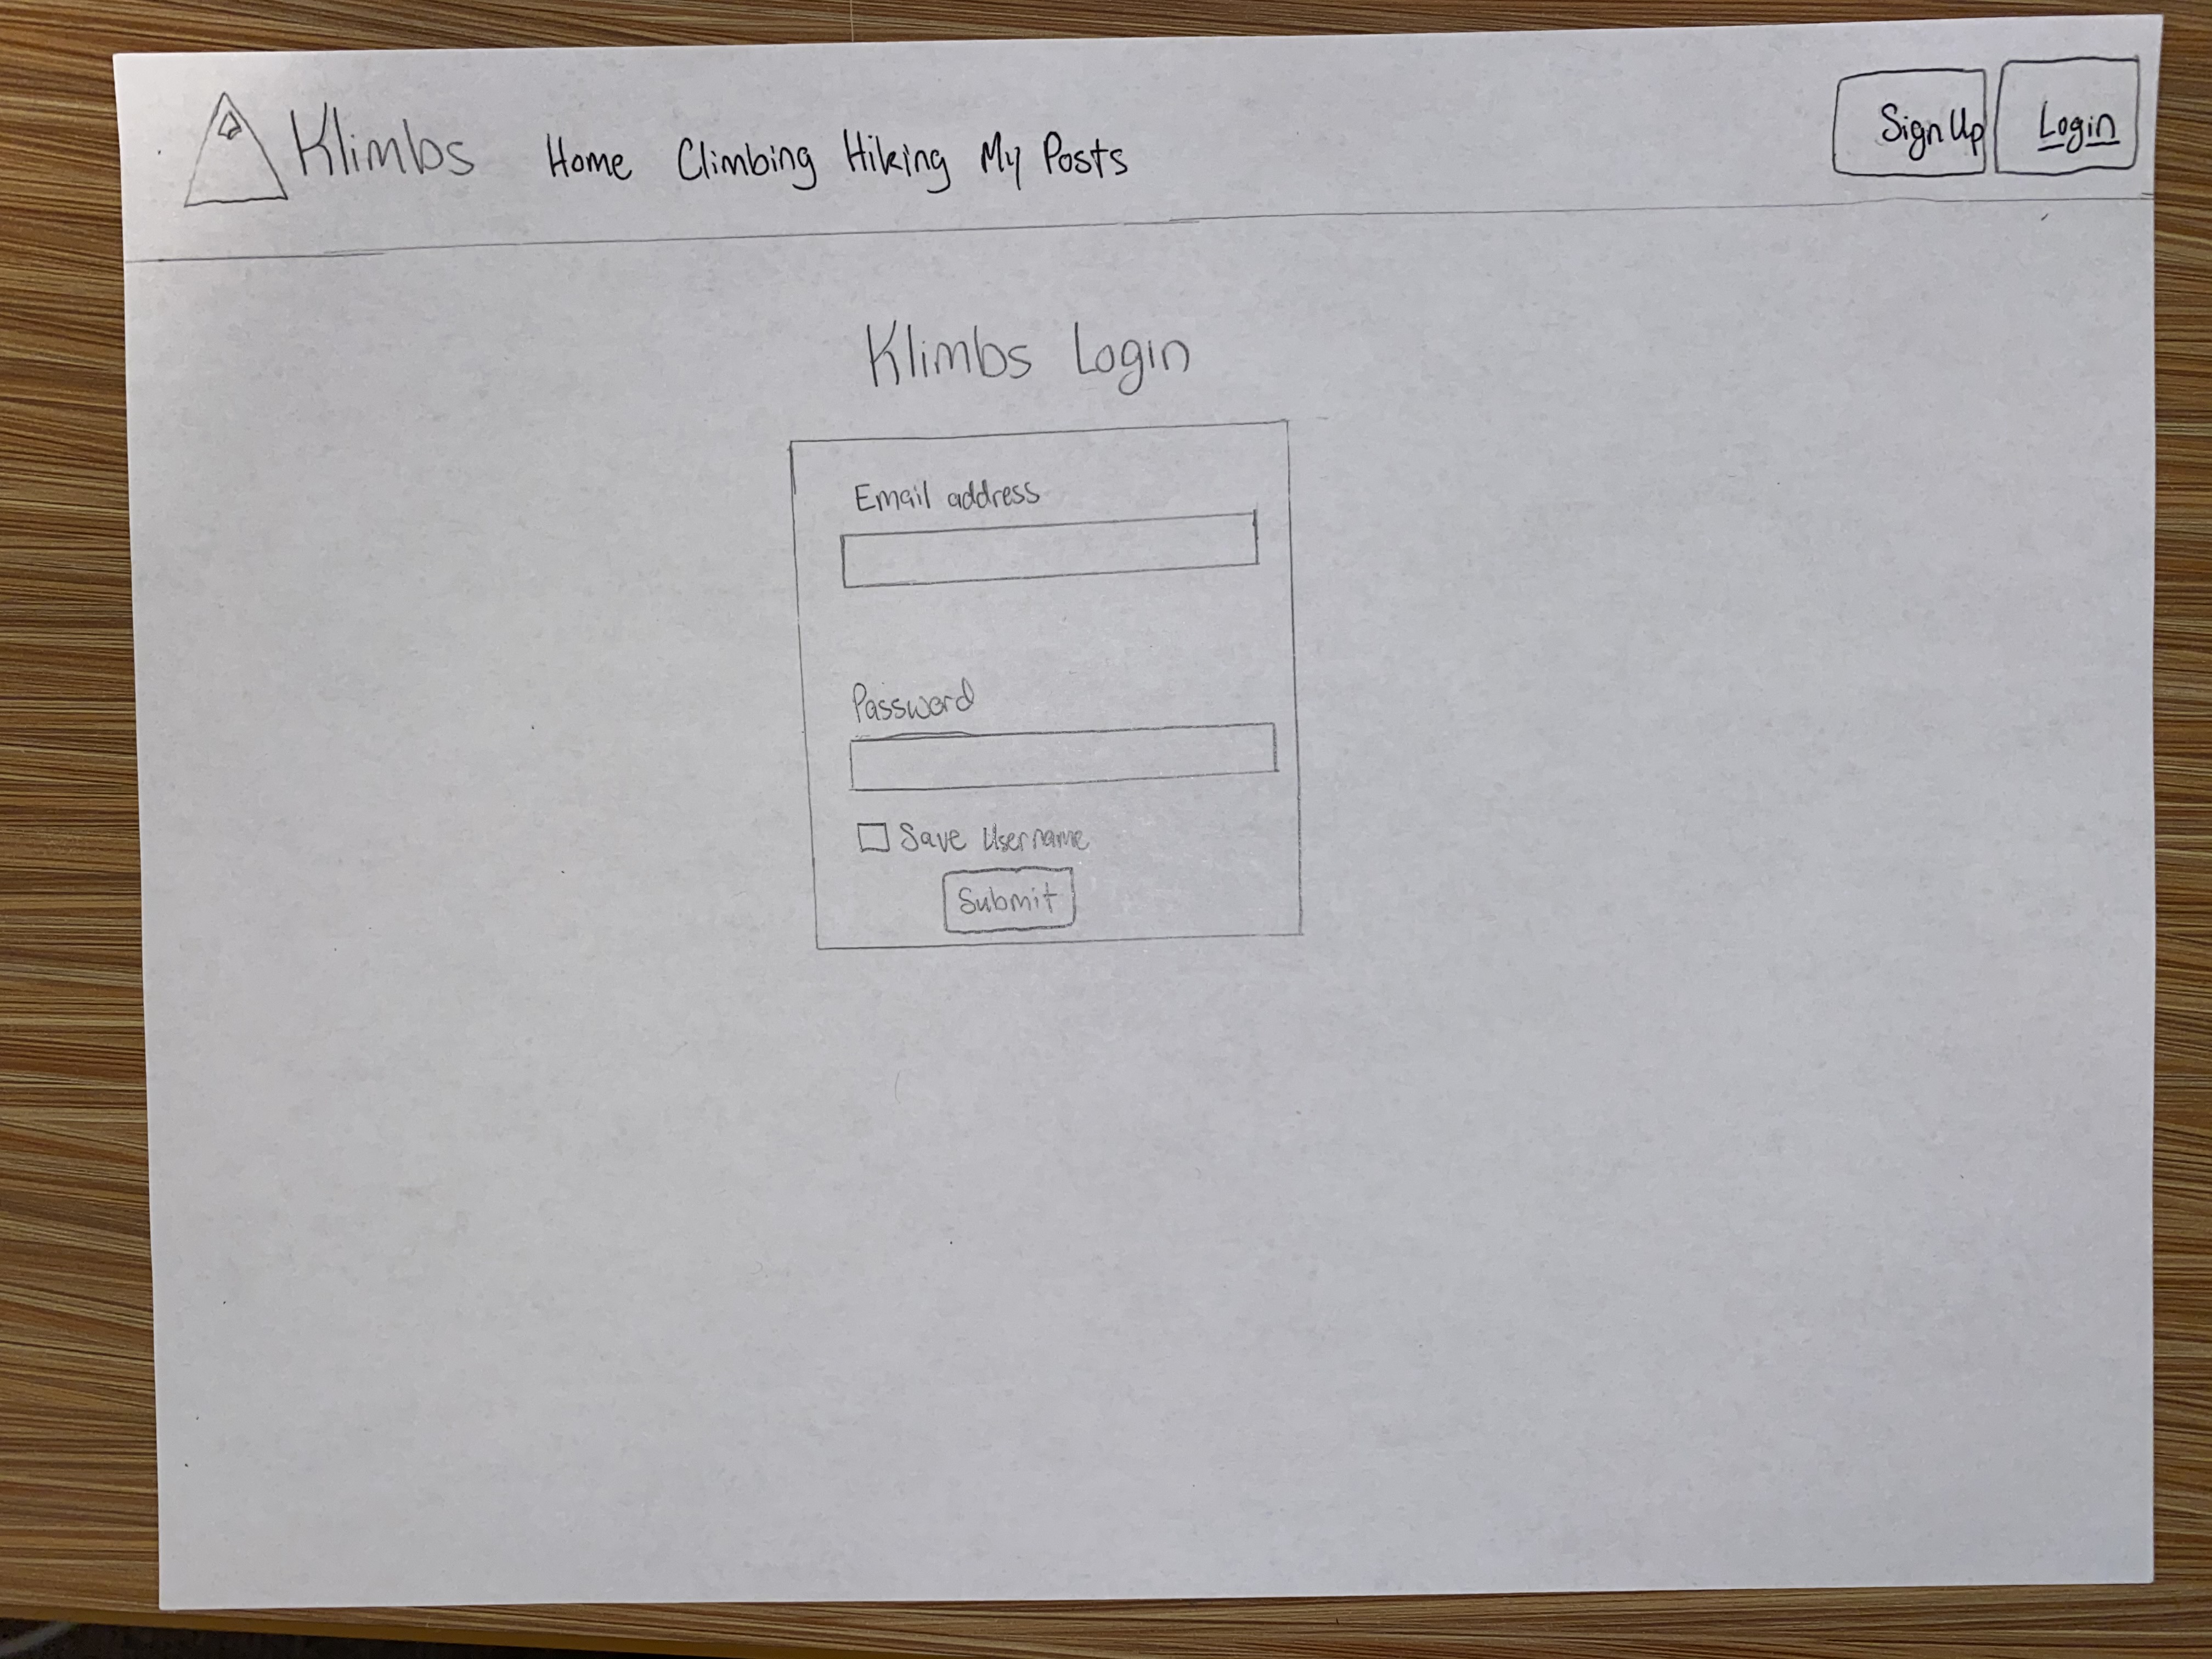 Klimbs Home Climbing Hiking My Posts Sign Up Login
Klimbs Login
Email address
Password
Save Username
Submit